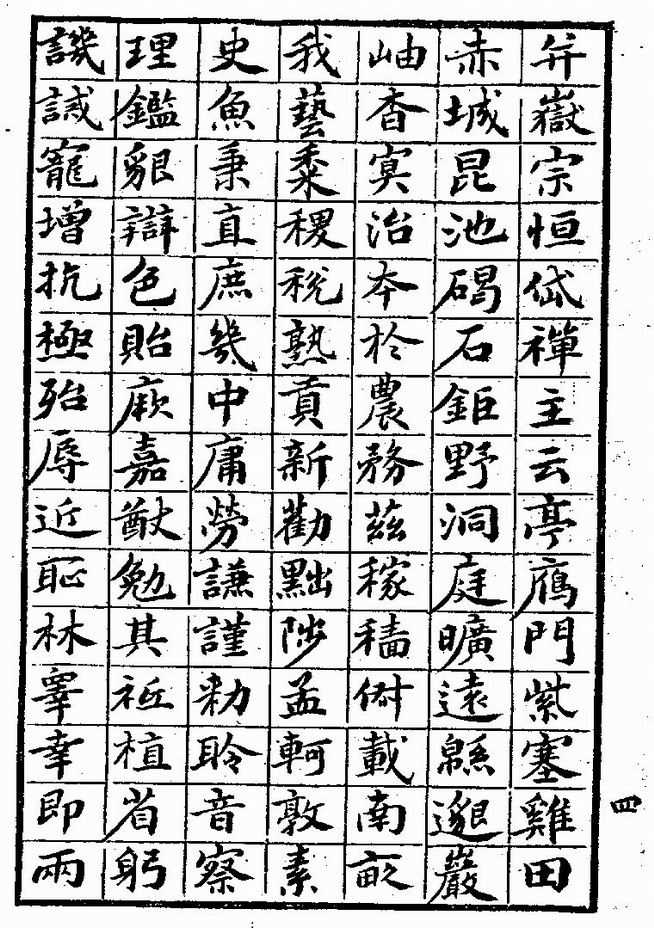 并嶽宗恒岱禪主云亭鴈門紫塞雞田
赤城昆池碣石鉅野洞庭曠遠緜邈巖
岫杳冥治夲於農務茲稼穡俶載南畝
我藝黍稷稅熟貢新勸黜陟孟軻敦素
史魚秉直庶幾中庸勞謙謹勅聆音察
理鑑貌辯色貽厥嘉猷勉其祗植省躬
譏誡寵增抗極殆辱近恥林皐幸即兩
四